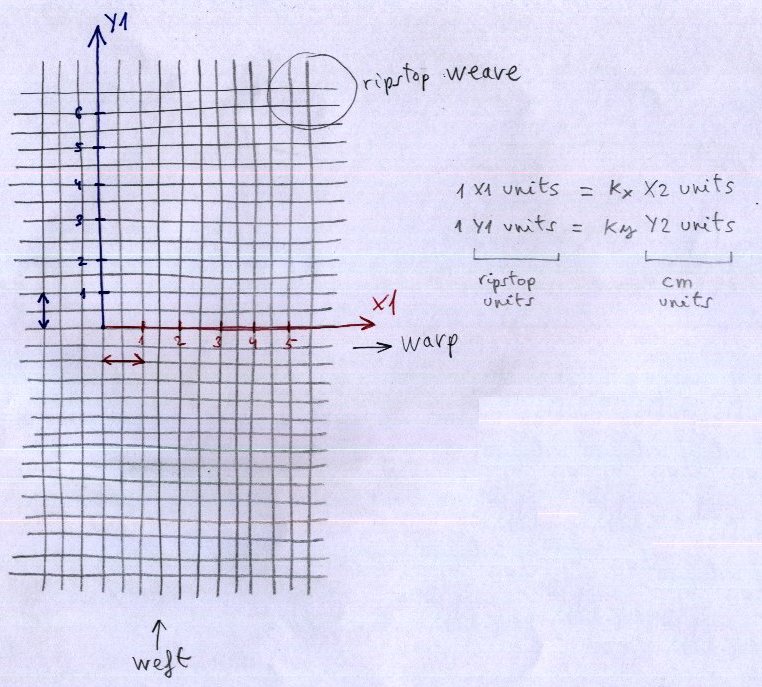 Y1
ripstop weave
6
5
4
3
2
1
1 X1 units = Kx X2 units
1 Y1 units = Ky Y2 units
ripstop units
cm units
X1
1 2 3 4 5
warp
weft